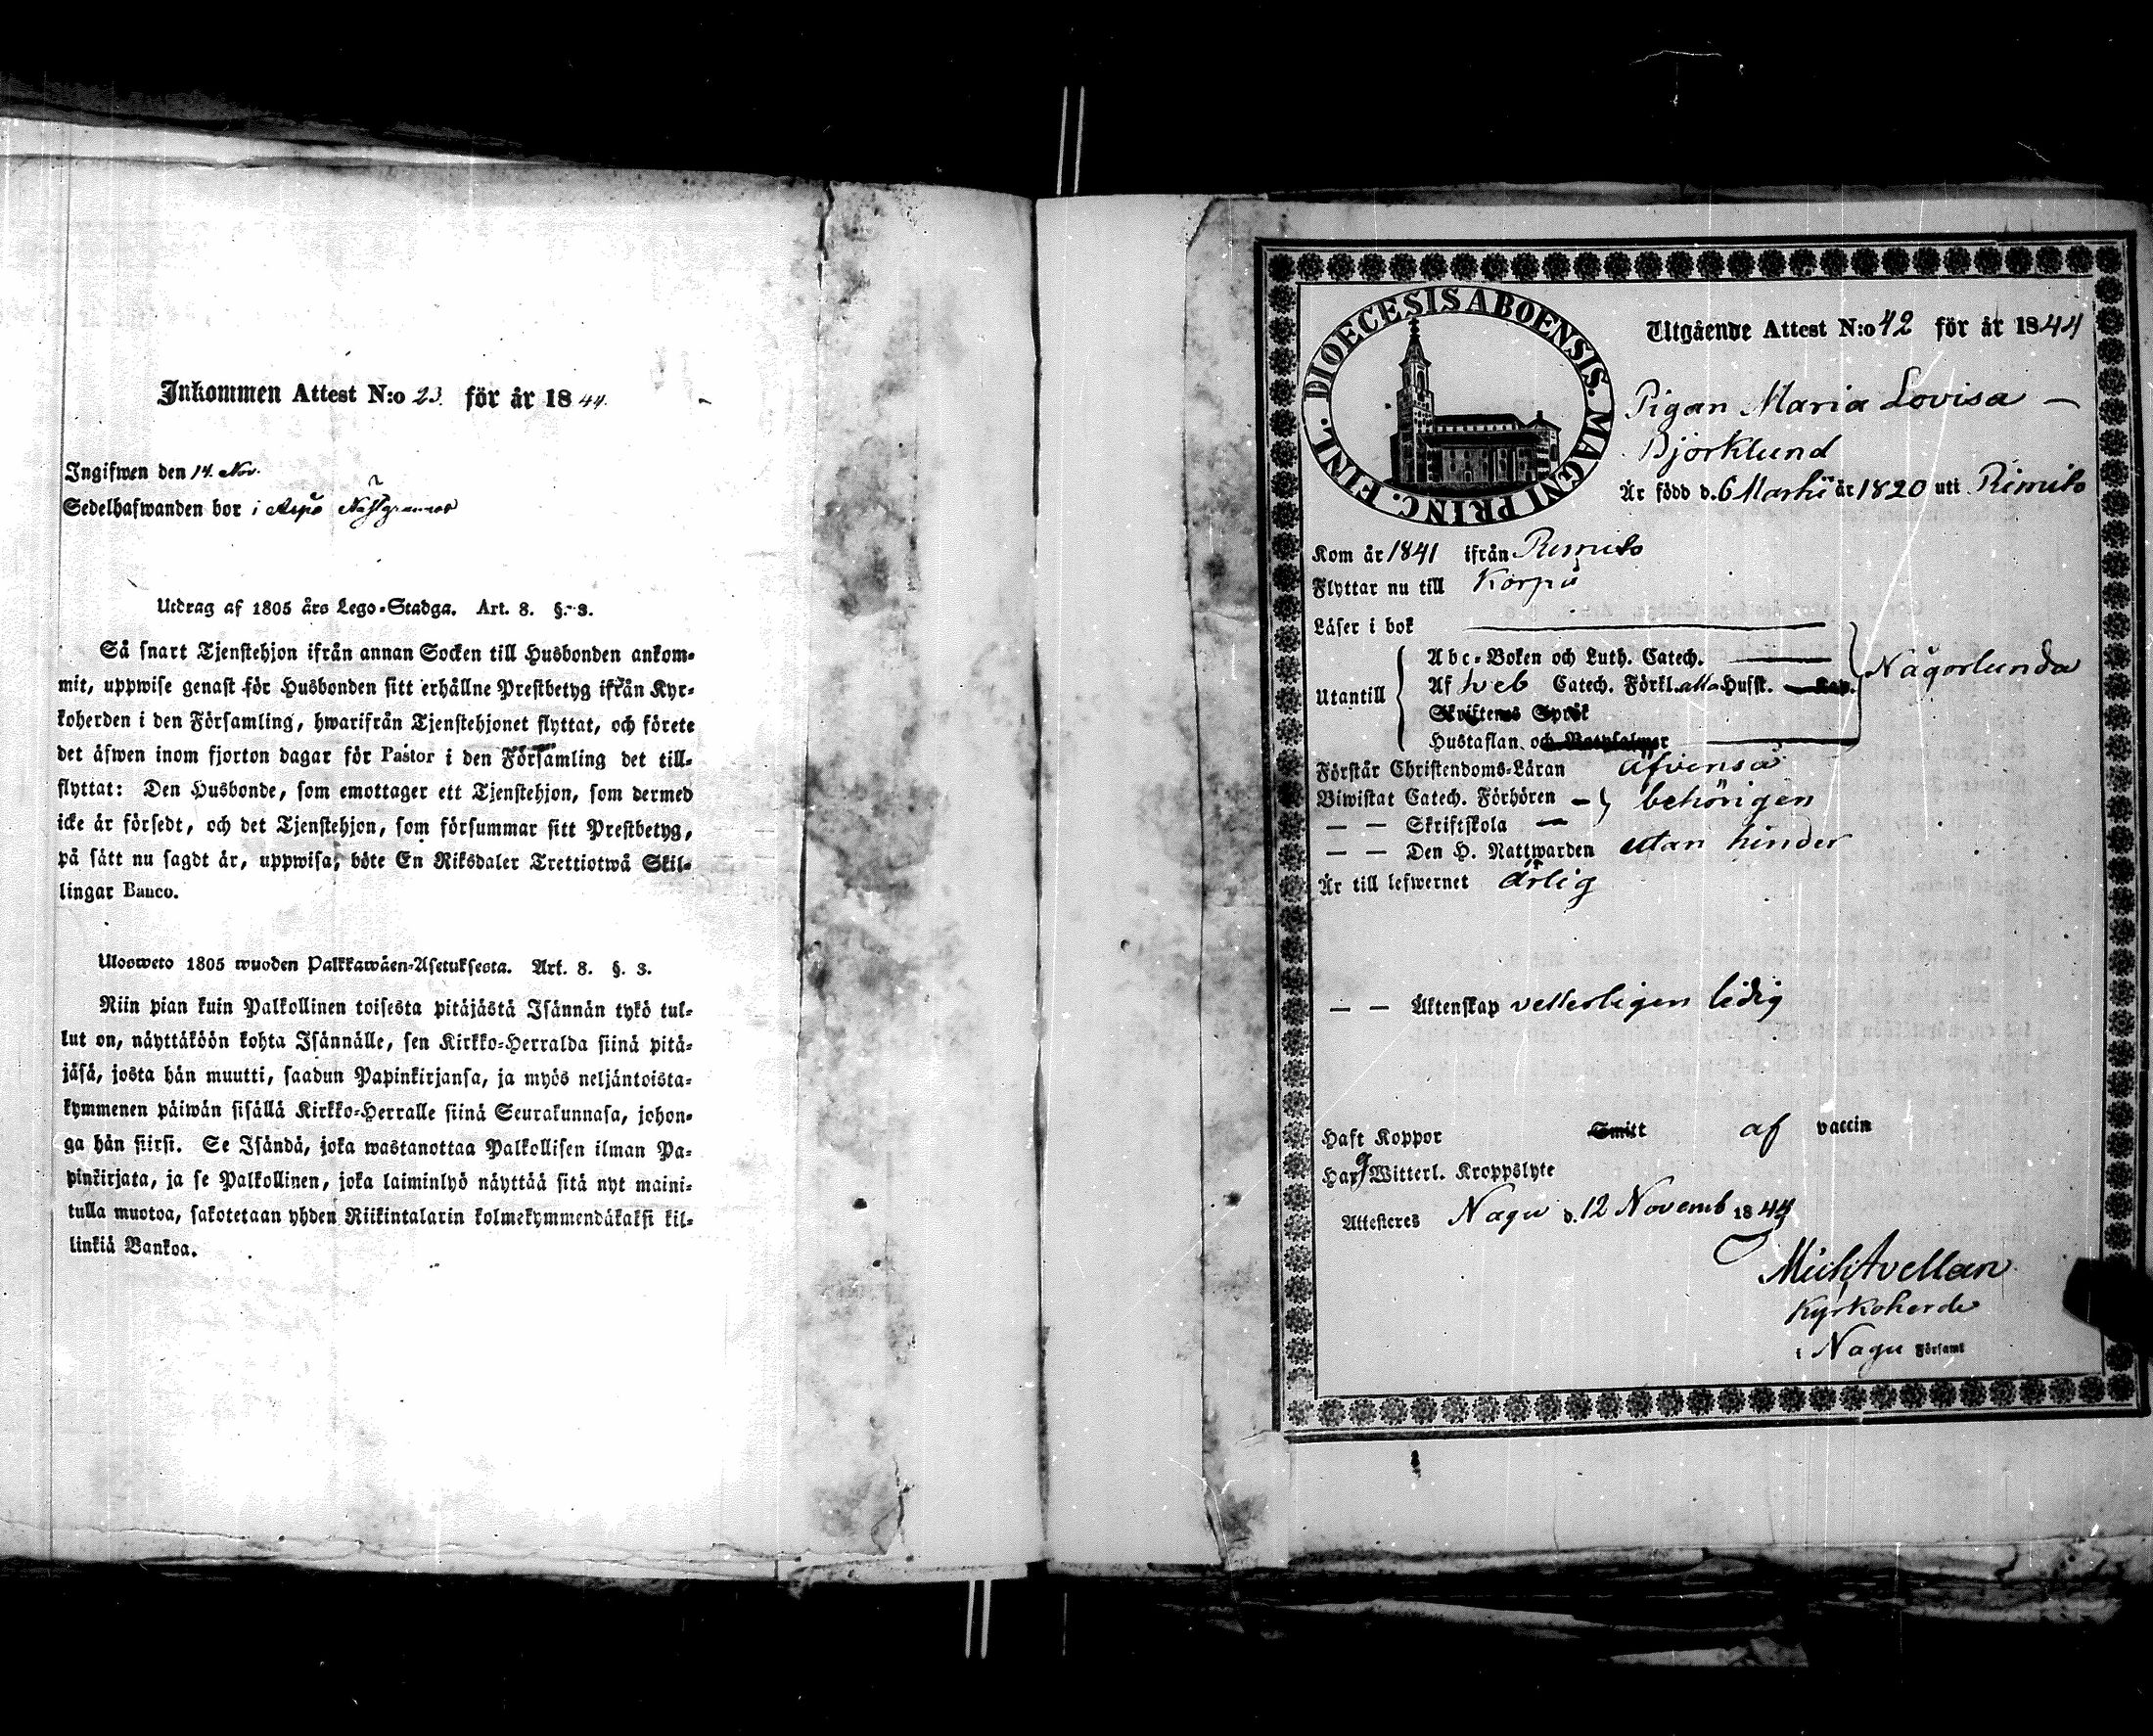 Inkommen Attest N:o 23. för år 1844.
Ingifwen den 14. Nov.
Sedelhafwanden bor i Aspö
Utdrag af 1805 års Lego-Stadga. Art. 8. §. 3.
Så snart Tjenstehjon ifrån annan Socken till Husbonden ankom-
mit, uppwise genast för Husbonden sitt erhållne Prestbetyg ifrån Kyr-
koherden i den Församling, hwarifrån Tjenstehjonet flyttat, och förete
det äfwen inom fjorton dagar för Pastor i den Församling det till-
flyttat: Den Husbonde, som emottager ett Tjenstehjon, som dermed
icke är försedt, och det Tjenstehjon, som försummar sitt Prestbetyg,
på sätt nu sagdt är, uppwisa, böte En Riksdaler Trettiotwå Skil-
lingar Banco.
Ulosweto 1805 wuoden Palkkawäen-Asetuksesta. Art. 8. §. 3.
Niin pian kuin Palkollinen toisesta pitäjästä Isännän tykö tul-
lut on, näyttäköön kohta Isännälle, sen Kirkko-Herralda siinä pitä-
jäsä, josta hän muutti, saadun Papinkirjansa, ja myös neljäntoista-
kymmenen päiwän sisällä Kirkko-Herralle siinä Seurakunnasa, johon-
ga hän siirsi. Se Isändä, joka wastanottaa Palkollisen ilman Pa-
pinkirjata, ja se Palkollinen, joka laiminlyö näyttää sitä nyt maini-
tulla muotoa, sakotetaan yhden Riikintalarin kolmekymmendäkaksi kil-
linkiä Bankoa.
DIOECESIS ABOENSIS. MAGNI PRINC. FINL.
Utgående Attest N:o 42 för år 1844
Pigan Maria Lovisa —
Björklund
Är född d. 6 Martii år 1820 uti Rimito
Kom år 1841 ifrån Rimito
Flyttar nu till Korpo
Läser i bok
Abc-Boken och Luth. Catech.
Utantill Af Sveb Catech. Förkl. alla Hufst. Kap. Någorlunda
Skriftenes Språk
Hustaflan och Botpsalmer
Förstår Christendoms-Läran äfvenså
Biwistat Catech. Förhören behörigen
— — Skriftskola
— — Den H. Nattwarden utan hinder
Är till lefwernet ärlig
— — Äktenskap vetterligen ledig
Haft Koppor Smitt af vaccin
Har ej Witterl. Kroppslyte
Attesteres Nagu d. 12 Novemb 1844
Mich Avellan
Kyrkoherde
i Nagu Församl